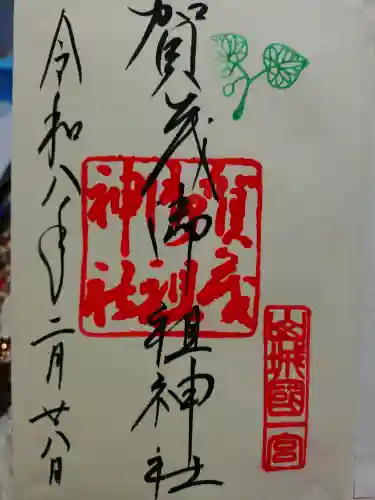 賀茂御祖神社
令和八年二月廿八日
賀茂
御祖
神社
山城國一宮